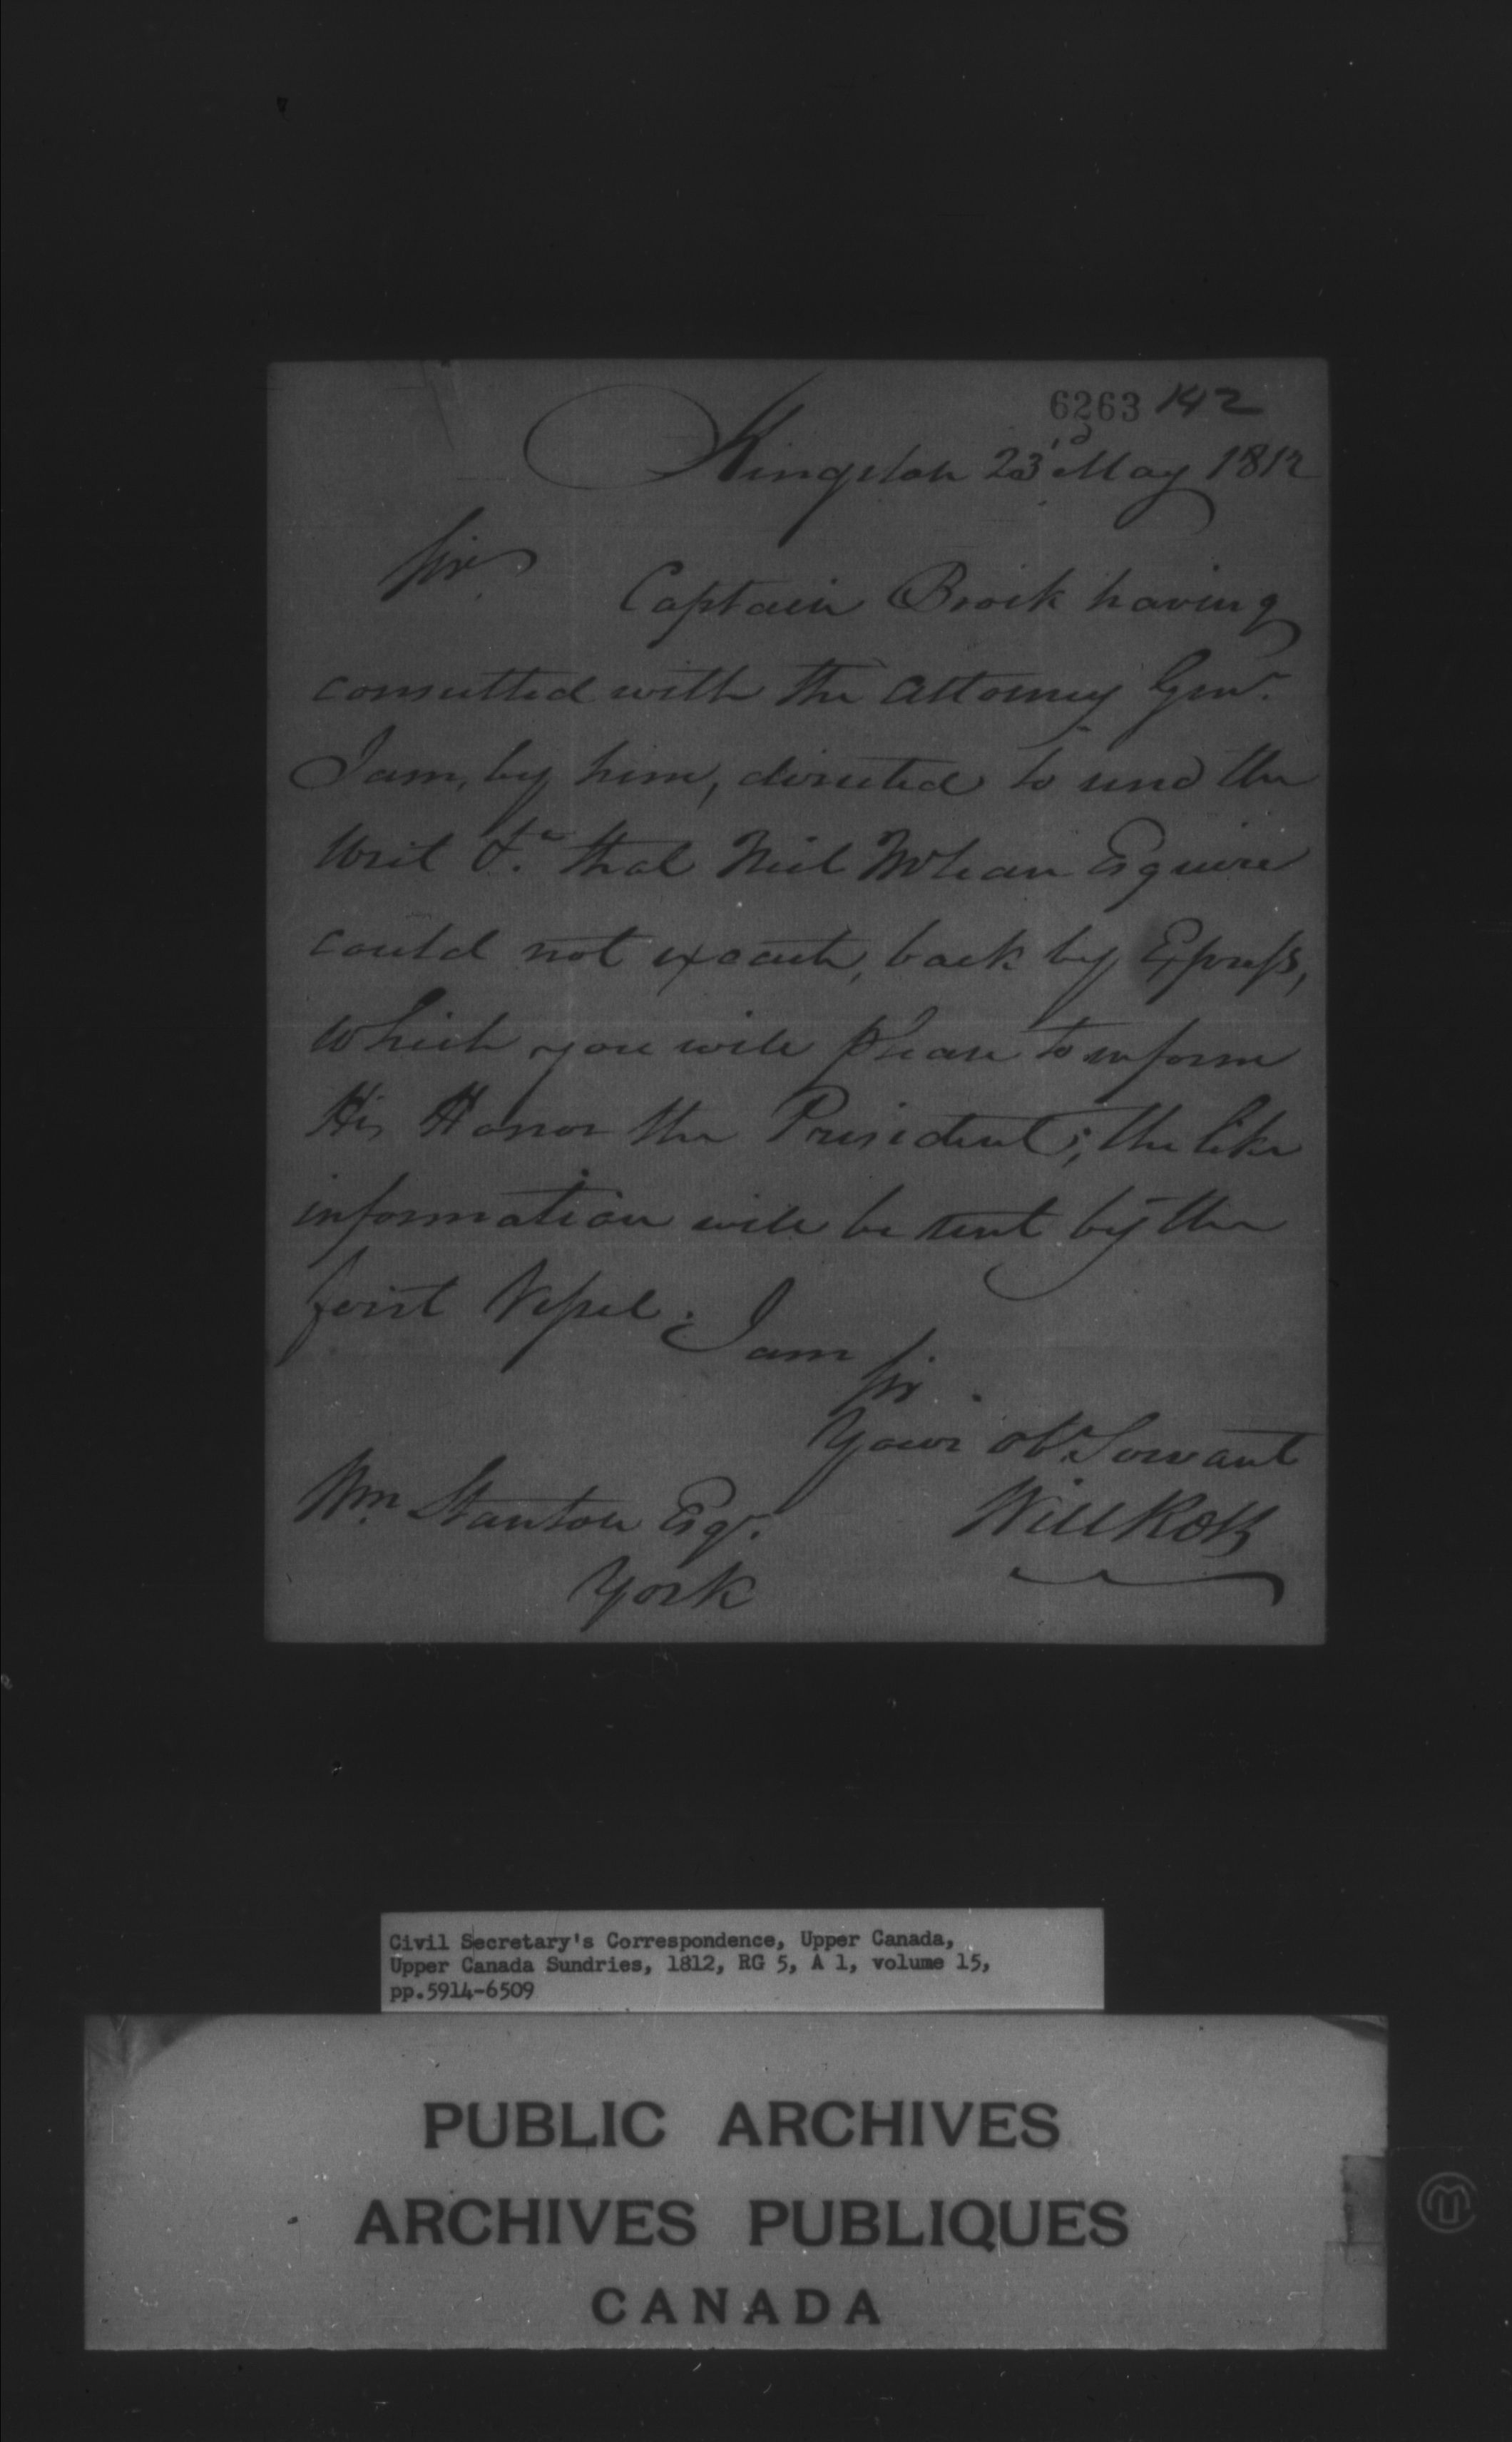 6263 142
Kingston 23d May 1812
Sir,
Captain Brock having
consulted with the Attorney Genl.
I am, by him, directed to send the
Writ &c. that Neil McLean Esquire
could not execute, back by Express,
which you will please to inform
His Honor the President; the like
information will be sent by the
first Vessel. I am
Sir.
Your obt. Servant
Will Ross
Wm Stanton Esqr.
York
Civil Secretary's Correspondence, Upper Canada,
Upper Canada Sundries, 1812, RG 5, A 1, volume 15,
pp.5914-6509
PUBLIC ARCHIVES
ARCHIVES PUBLIQUES
CANADA